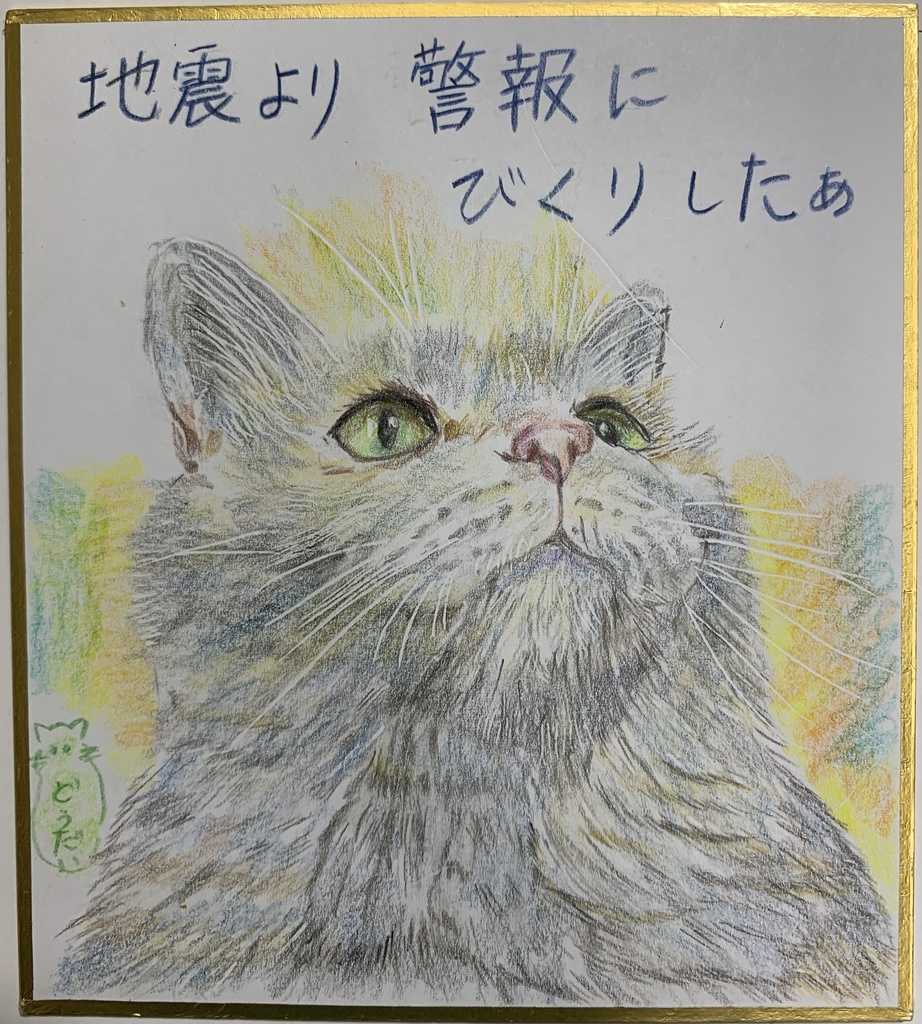 地震より 警報に
びくりしたぁ
どうだい